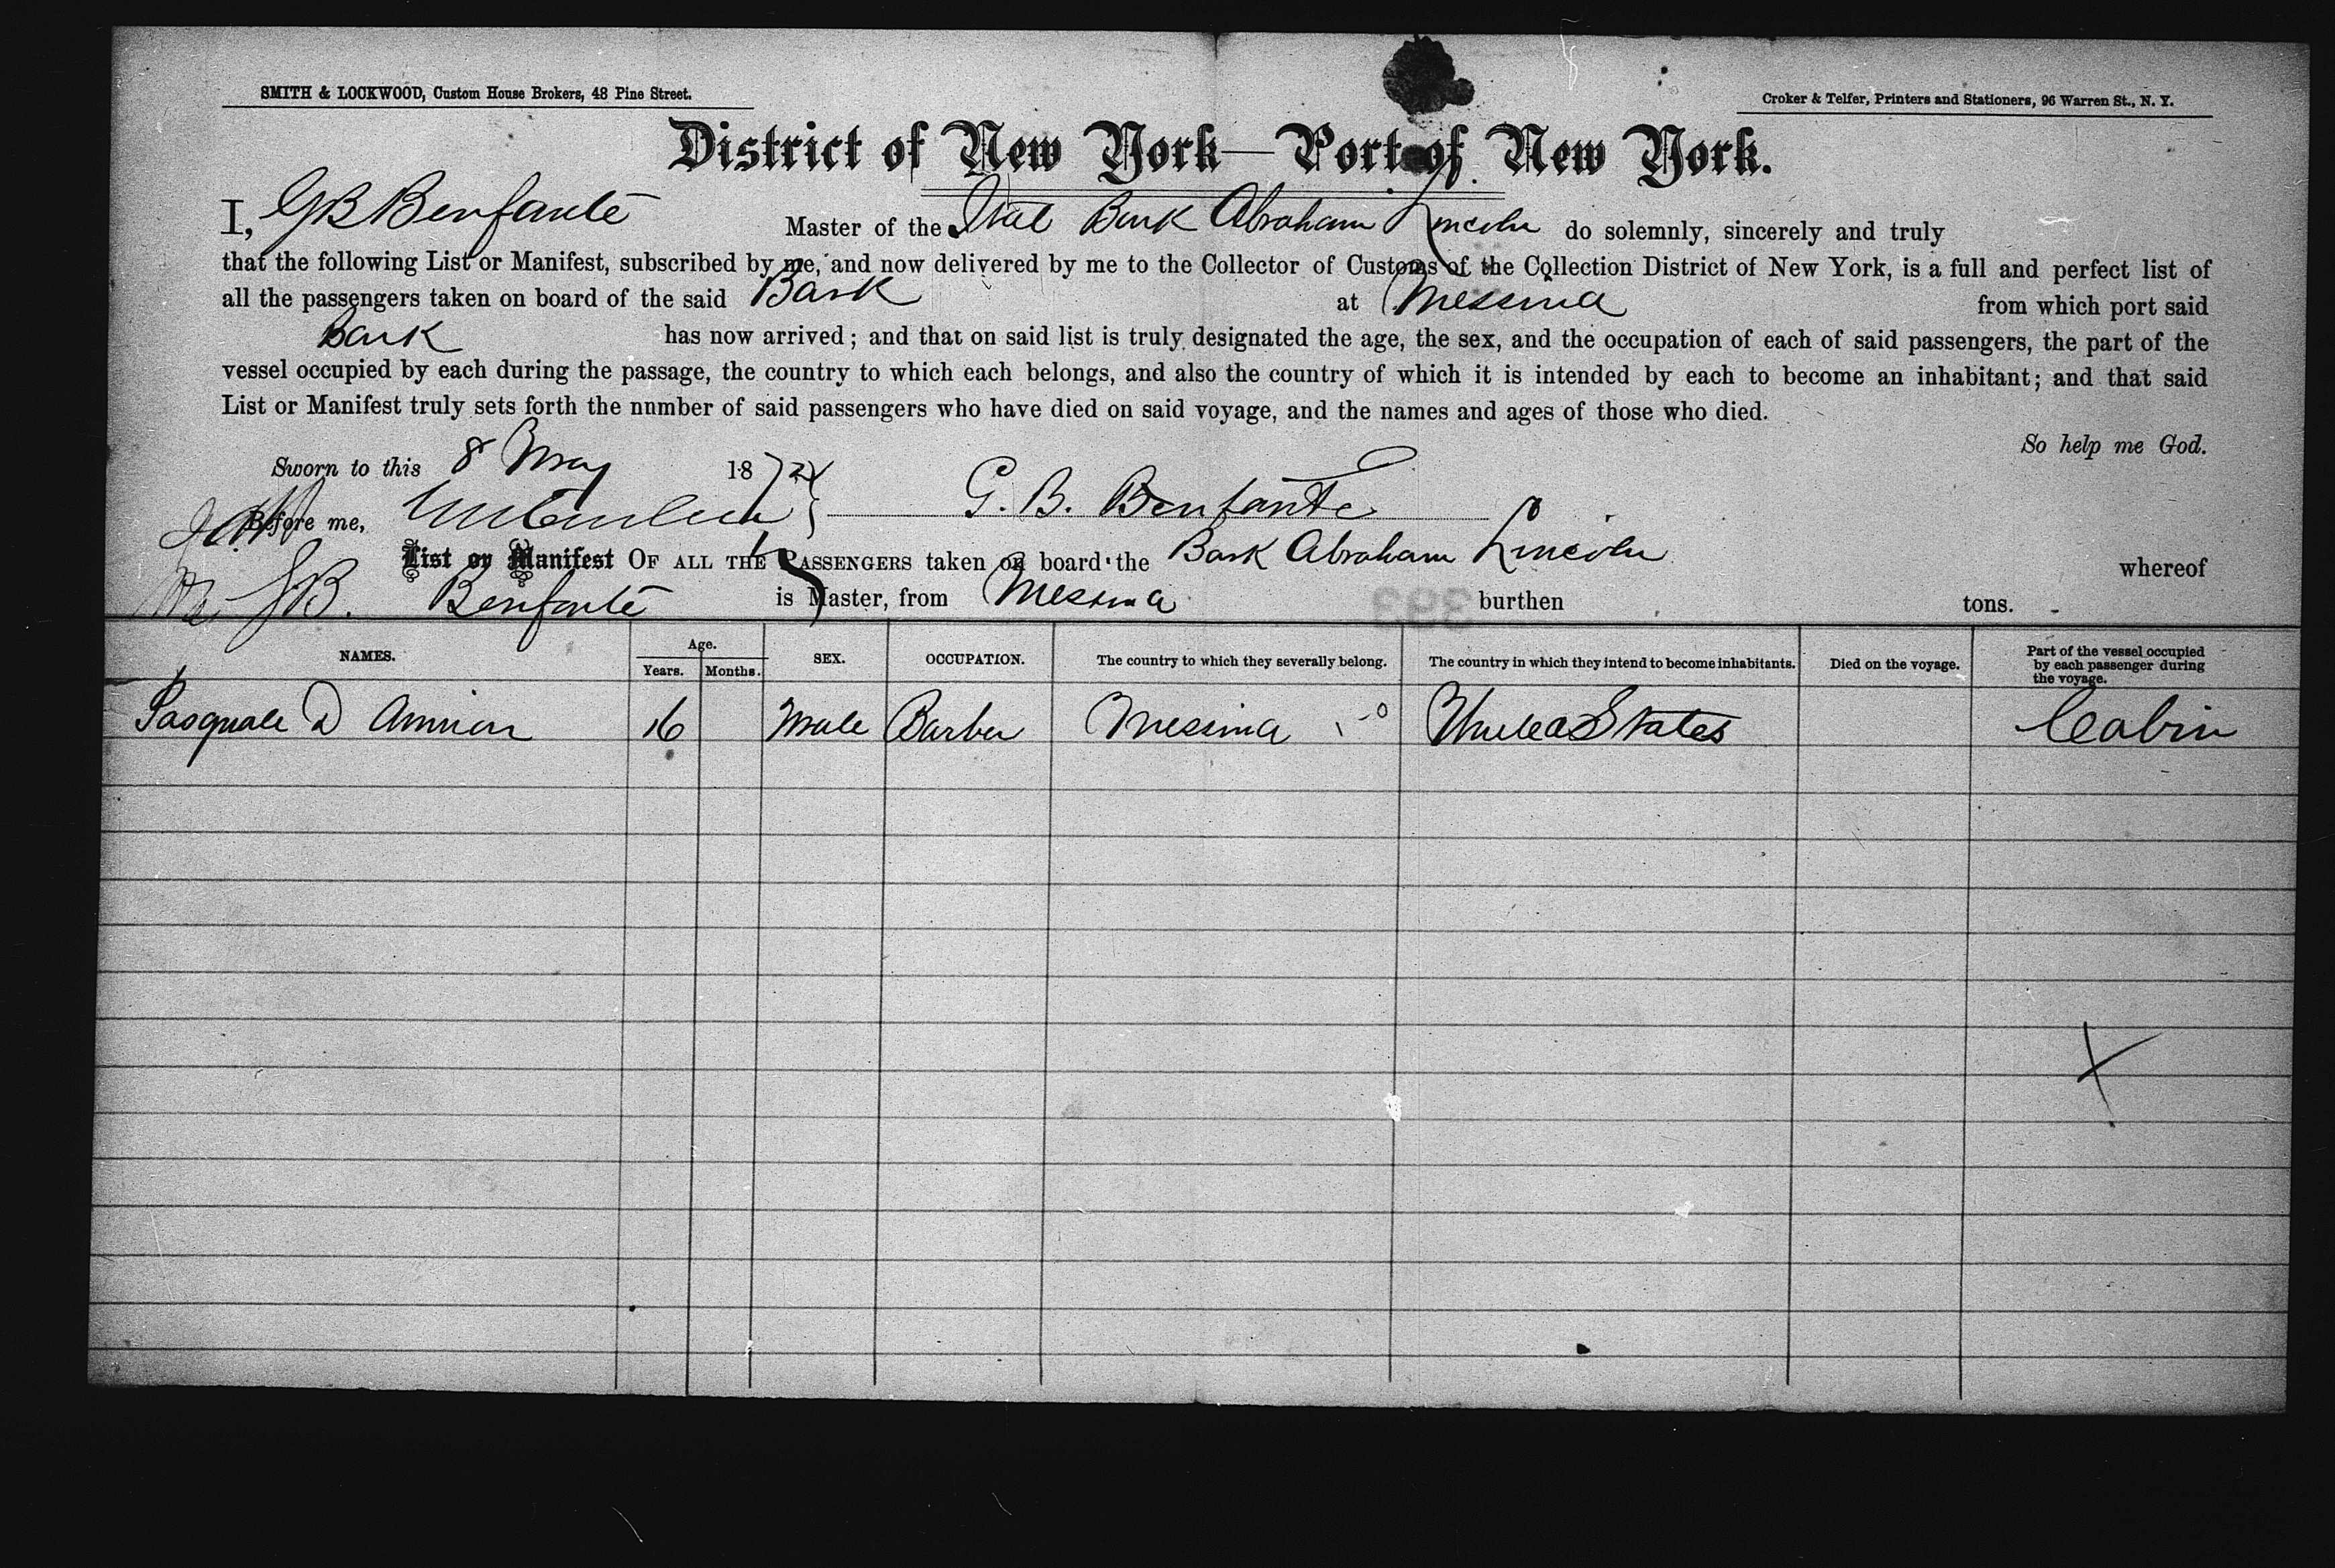 SMITH & LOCKWOOD, Custom House Brokers, 48 Pine Street.
Croker & Telfer, Printers and Stationers, 96 Warren St., N. Y.
District of New York—Port of New York.
I, GB Benfante Master of the Ital Bark Abraham Lincoln do solemnly, sincerely and truly
that the following List or Manifest, subscribed by me, and now delivered by me to the Collector of Customs of the Collection District of New York, is a full and perfect list of
all the passengers taken on board of the said Bark at Messina from which port said
Bark has now arrived; and that on said list is truly designated the age, the sex, and the occupation of each of said passengers, the part of the
vessel occupied by each during the passage, the country to which each belongs, and also the country of which it is intended by each to become an inhabitant; and that said
List or Manifest truly sets forth the nnmber of said passengers who have died on said voyage, and the names and ages of those who died.
So help me God.
Sworn to this 8 May 187
Before me, G. B. Benfante
List or Manifest OF ALL THE PASSENGERS taken on board the Bark Abraham Lincoln whereof
B. Benfante is Master, from Messina burthen tons.
393
NAMES. Age. Years. Months. SEX. OCCUPATION. The country to which they severally belong. The country in which they intend to become inhabitants. Died on the voyage. Part of the vessel occupied by each passenger during the voyage.
Pasquale D 16 Male Barber Messina United States Cabin